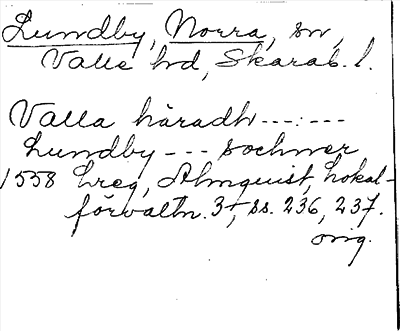 Lundby, Norra, sn,
Valle hd, Skarab. l.
Valla häradh ---:---
Lundby --- sochner
1558 Lreg, Almquist, Lokal-
förvaltn. 3, ss. 236, 237.
orig.